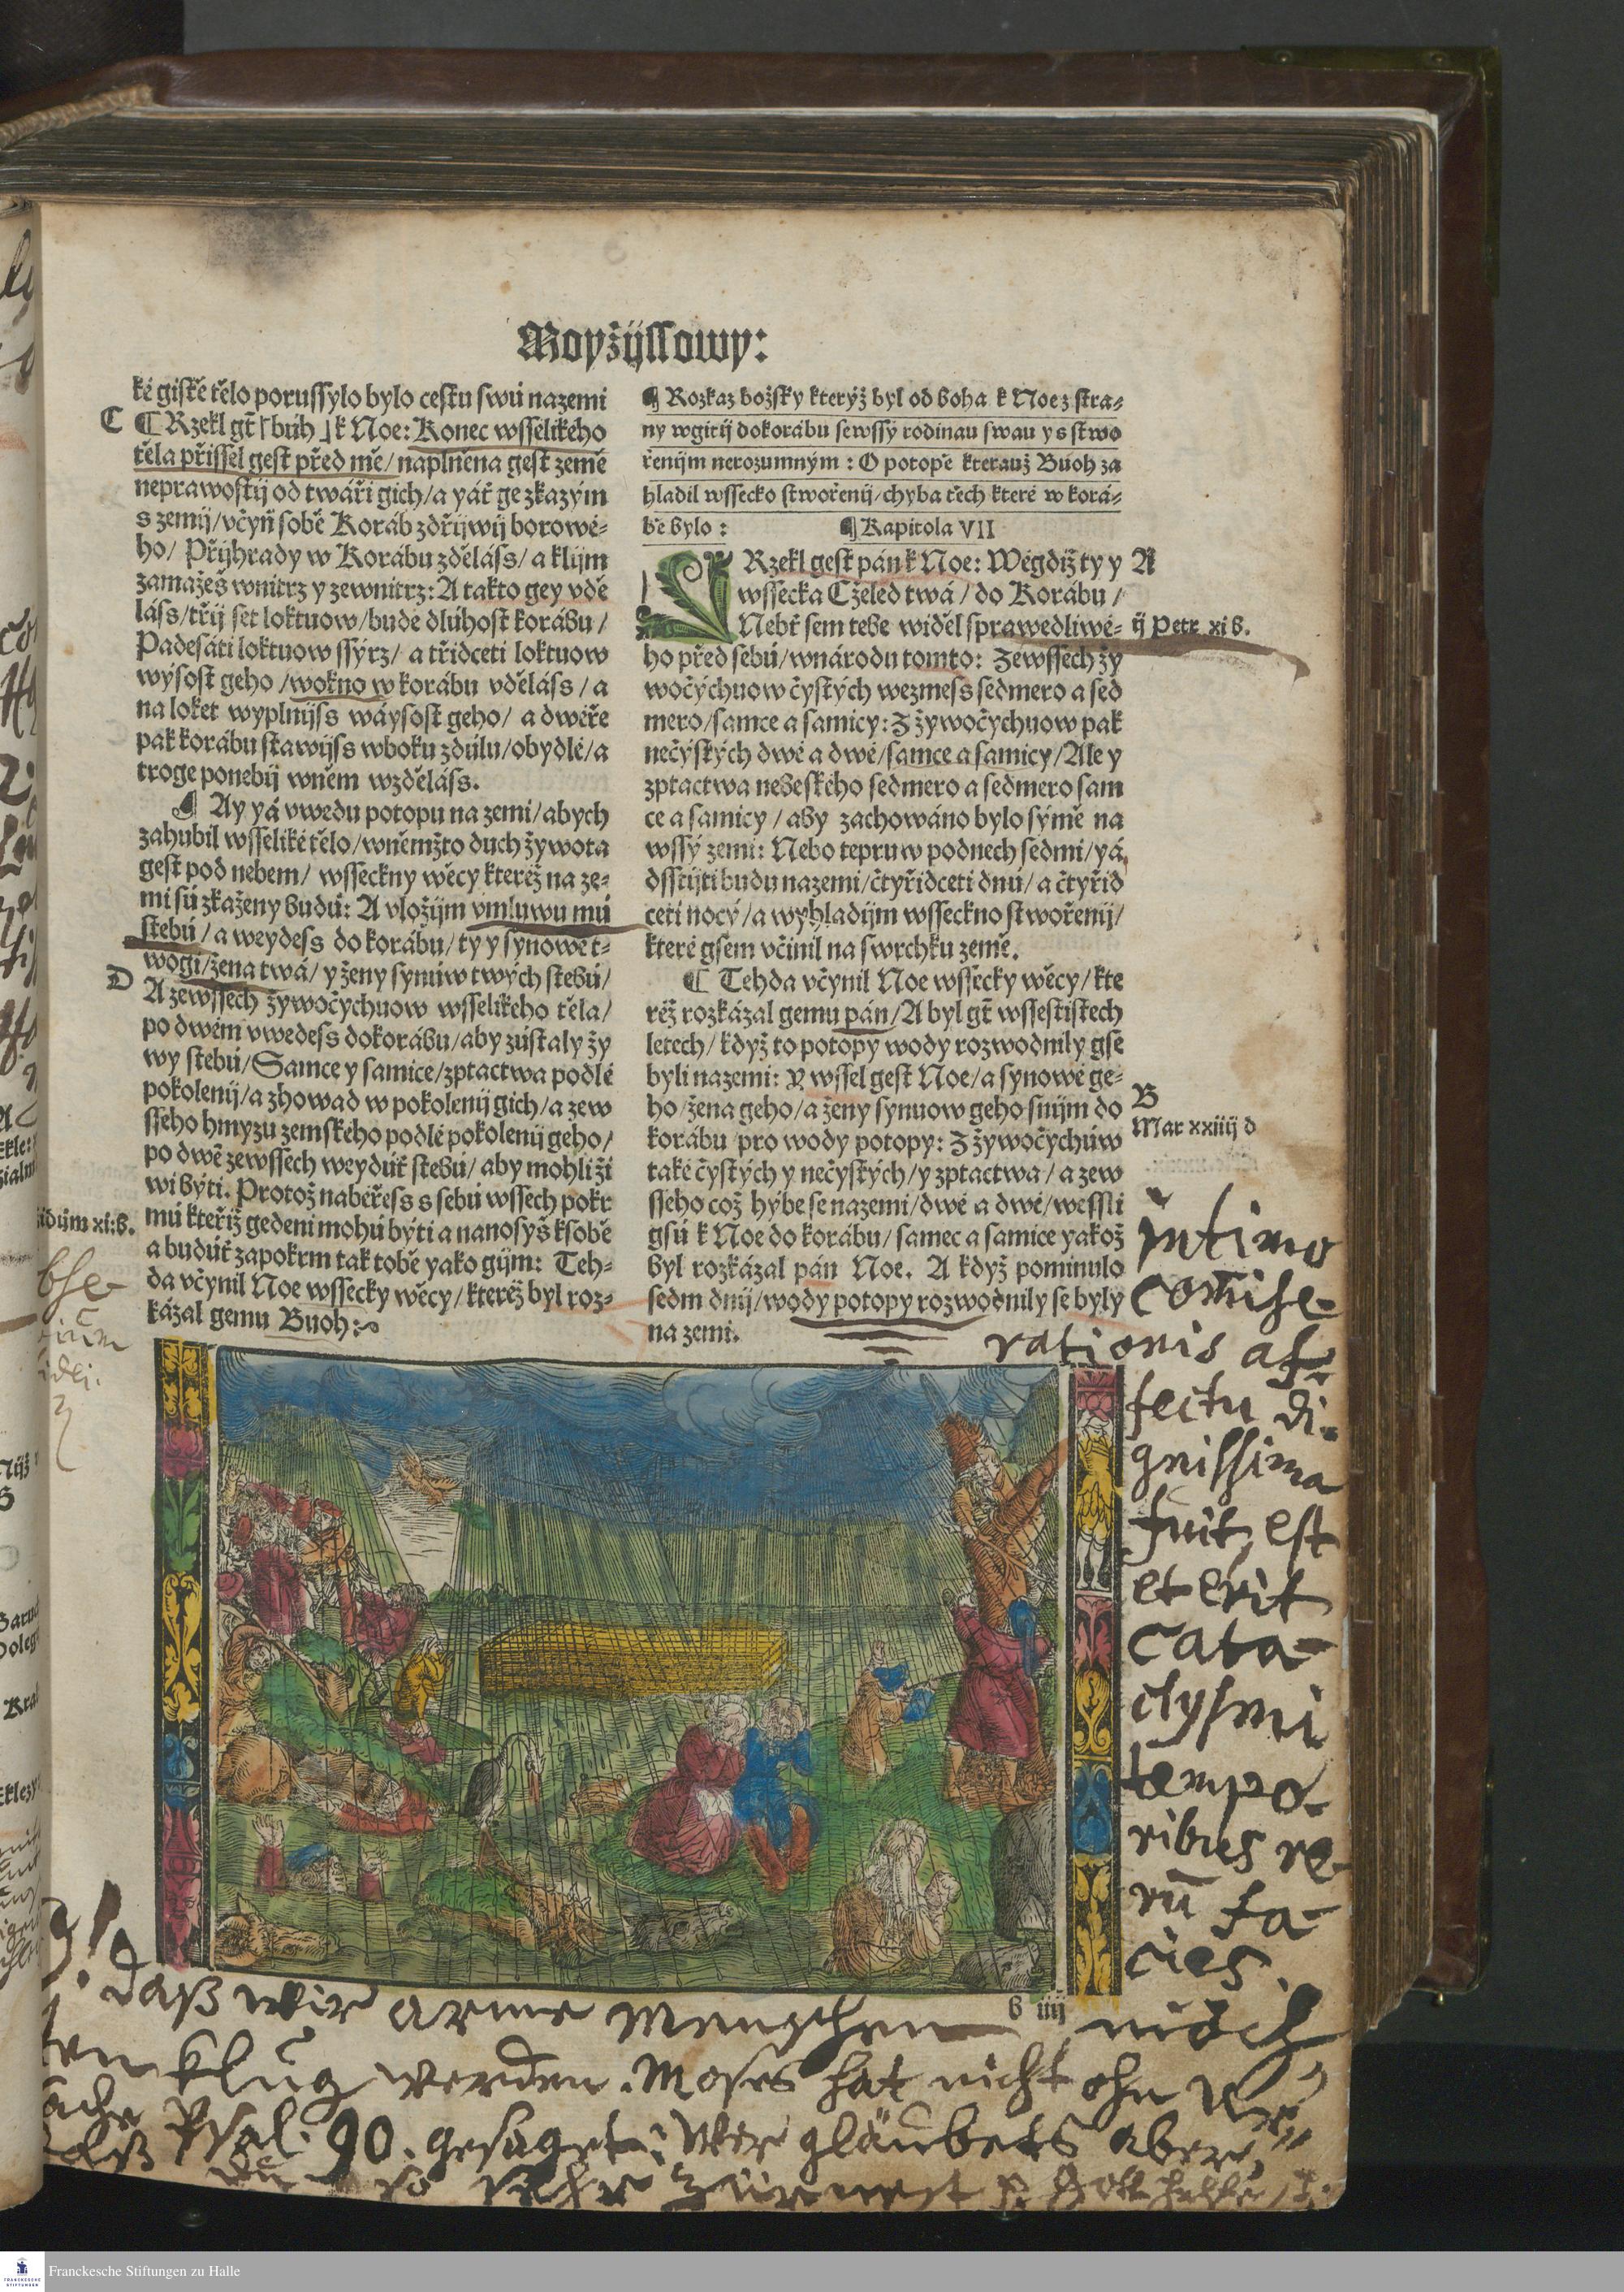 Moyžijssowy:
ké gistě tělo porussylo bylo cestu swú nazemi
C
¶ Rzekl gt̄ ⌈búh⌋ k Noe: Konec wsselikého
těla přissel gest před mě/naplněna gest země
neprawostij od twáři gich/a yáť ge zkazým
s zemij/včyň sobě Koráb zdřijwij borowé-
ho/ Přijhrady w Korábu zděláss/a klijm
zamažes wnitrz y zewnitrz: A takto gey vdě
láss/třij set loktuow/bude dlúhost korábu/
Padesáti loktuow ssýrz/ a třidceti loktuow
wýsost geho/wokno w korábu vděláss/a
na loket wyplnijss wáysost geho/ a dweře
pak korábu stawijss wboku zdúlu/obydlé/a
troge ponebij wněm wzděláss.
¶ Ay yá vwedu potopu na zemi/abych
zahubil wsseliké tělo/wněmžto duch žywota
gest pod nebem/ wsseckny wěcy kteréž na ze-
mi sú zkaženy budú: A vložijm vmluwu mú
stebú/a weydess do korábu/ty y synowé t-
wogi/žena twá/ y ženy synúw twých stebú/
D
A zewssech žywočychuow wsselikého těla/
po dwém vwedess dokorábu/aby zústaly žy
wy stebú/Samce y samice/zptactwa podlé
pokolenij/a zhowad w pokolenij gich/a zew
sseho hmyzu zemského podlé pokolenij geho/
po dwé zewssech weydúť stebú/aby mohli ži
wi býti. Protož nabéřess s sebú wssech pokr
mú kteřijž gedeni mohú býti a nanosyš ksobě
a budúť zapokrm tak tobě yako gijm: Teh-
da včynil Noe wssecky wěcy/kteréž byl roz-
kázal gemu Buoh:
¶ Rozkaz božsky kterýž byl od boha k Noe z stra-
ny wgitij dokorábu sewssý rodinau swau y s stwo
řenijm nerozumným: O potopě kterauž Buoh za
hladil wssecko stwořenij/chyba těch které w korá-
bě bylo: ¶ Kapitola VII
Rzekl gest pán k Noe: Wégdiž ty y A
wssecka Cželed twá/do Korábu/
Nebť sem tebe widěl sprawedliwé- ij Petr. xi b.
ho před sebú/wnárodu tomto: Zewssech žy
wočýchuow čystých wezmess sedmero a sed
mero/samce a samicy: Z žywočychuow pak
nečystých dwé a dwé/samce a samicy/Ale y
zptactwa nebeského sedmero a sedmero sam
ce a samicy/aby zachowáno bylo sýmě na
wssý zemi: Nebo tepruw podnech sedmi/yá
dsstijti budu nazemi/čtyřidceti dnú/a čtyřid
ceti nocý/a wyhladijm wsseckno stwořenij/
které gsem včinil na swrchku země.
¶ Tehda včynil Noe wssecky wěcy/kte
réž rozkázal gemu pán/A byl gt̄ wssestistech
letech/když to potopy wody rozwodnily gsě
byli nazemi: Y wssel gest Noe/a synowé ge-
B
ho/žena geho/a ženy synuow geho snijm do
korábu/pro wody potopy: Z žywočychúw Mar xxiiij d
také čystých y nečystých/y zptactwa/a zew
sseho což hýbe se nazemi/dwé a dwé/wessli
gsú k Noe do korábu/samec a samice yakož
byl rozkázal pán Noe. A když pominulo
sedm dnij/wody potopy rozwodnily se byly
na zemi.
intimo
com̄ise-
rationis af-
fectu di-
gnissima
fuit, est
et erit
cata-
clysmi
tempo-
ribus re-
rū fa-
cies.
b iiij
daß wir arme Menschen möch
ten klug werden. Moses hat nicht ohn Ur-
sache Psal. 90. gesaget: Wer gläubets aber,
daß du so sehr zürnest
Franckesche Stiftungen zu Halle